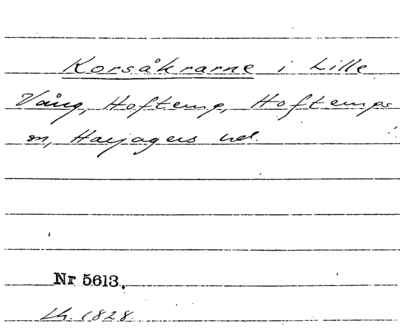 Korsåkrarne i Lille
Vång, Hofterup, Hofterups
sn, Harjagers hd.
Nr 5613.
Lh. 1828